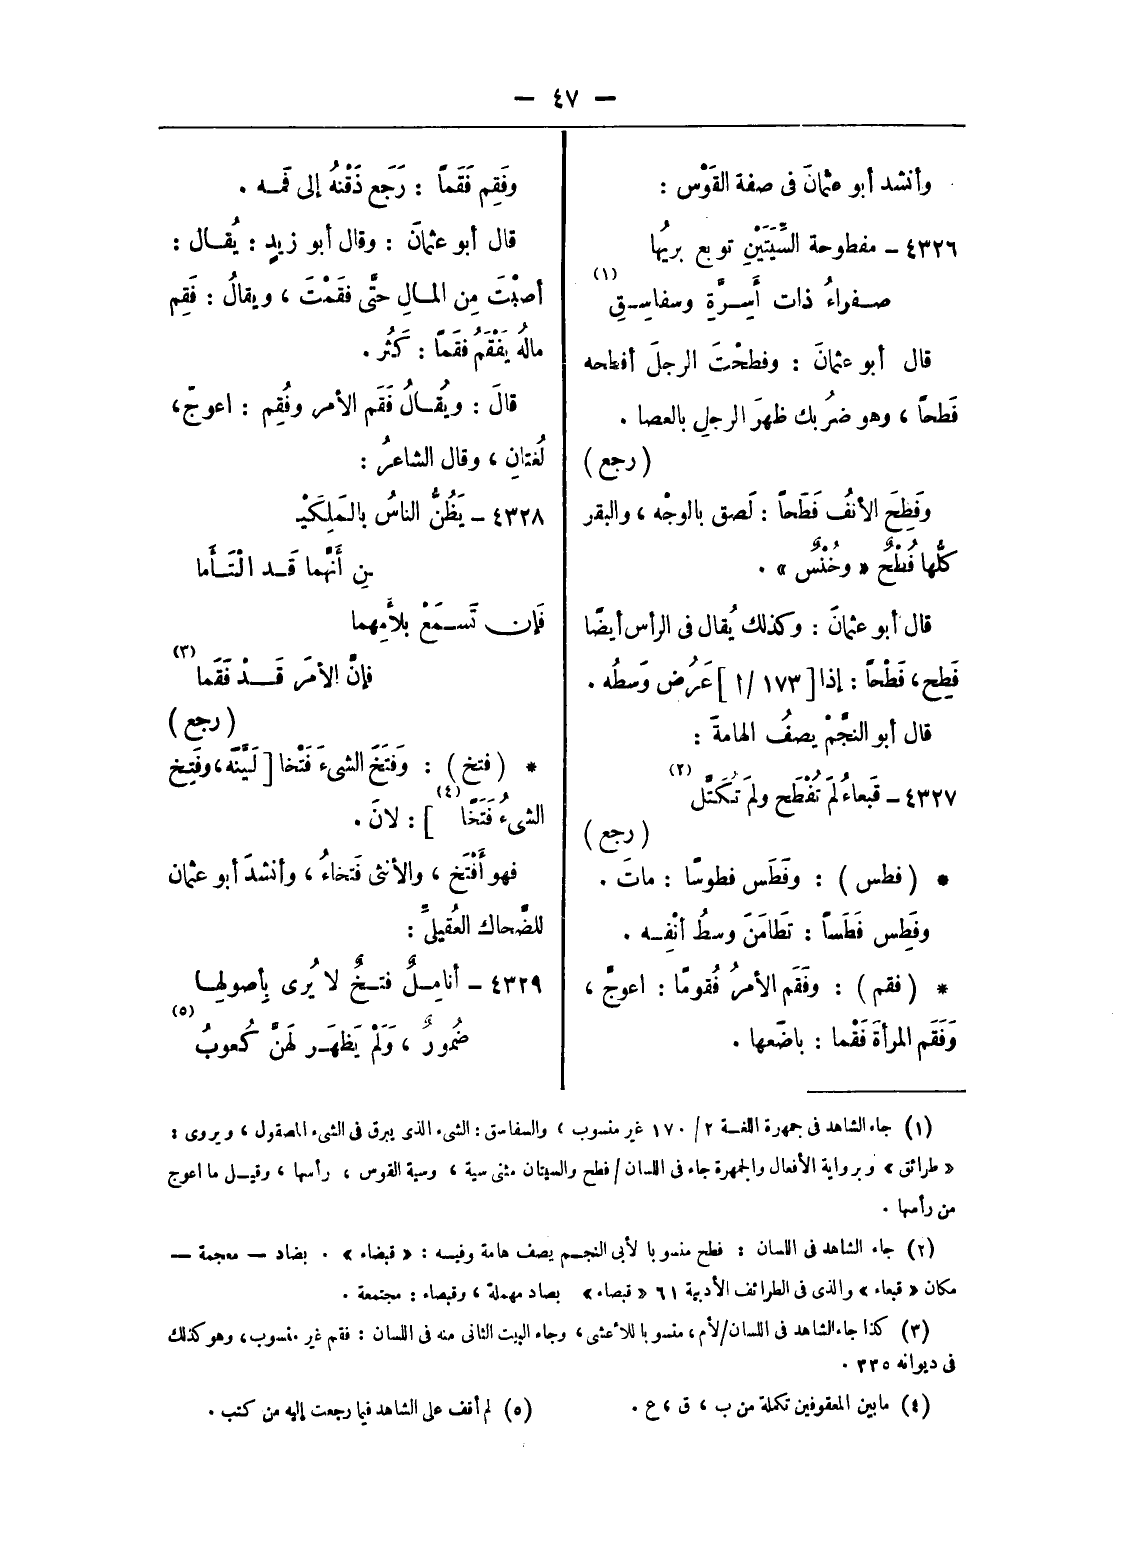 — ٤٧ —
وأنشد أبو عثمانَ فى صفة القَوْس :
٤٣٢٦ – مفطوحة السِّيَتَيْنِ توبع بريُها
صفراءُ ذات أَسِرَّةٍ وسفاسِقِ (١)
قال أبو عثمانَ : وفطحْتَ الرجلَ أفطحه
فَطحاً ، وهو ضرُبك ظهرَ الرجلِ بالعصا .
( رجع )
وفَطِحَ الأنفُ فَطَحاً : لَصق بالوجْه ، والبقر
كلُّها فُطْحٌ « وخُنْسٌ » .
قال أبو عثمانَ : وكذلك يُقال فى الرأس أيضًا
فَطِح ، فَطْحاً : إذا [ ١٧٣ / ا ] عَرُض وَسطُه .
قال أبو النجْمْ يصفُ الهامةَ :
٤٣٢٧ – قَبعاءُ لَمَ تُفْطَح ولمَ تُكَتَّل (٢)
( رجع )
* ( فطس ) : وفَطَس فطوسًا : ماتَ .
وفَطِس فَطَساً : تطَامَنَ وسطُ أنْفِه .
* ( فقم ) : وفَقَم الأمرُ فُقومًا : اعوجَّ ،
وَفَقَم المرأةَ فَقْما : باضَعها .
وفَقِم فَقَماً : رَجَع ذَقْنُهُ إلى فَمه .
قال أبو عثمانَ : وقال أبو زيدٍ : يُقال :
أصبْتَ مِن المالِ حتَّى فقَمْتَ ، ويقالُ : فَقِم
مالُه يَفْقَمُ فقَماً : كَثُر .
قالَ : ويُقالُ فَقَم الأمر وفُقِم : اعوجّ،
لُغتانِ ، وقال الشاعرُ :
٤٣٢٨ – يَظُنُّ الناسُ بالمَلِكَيْـ
ـنِ أَنَّهما قَد الْتَأَما
فَإن تَسمَعْ بلأمِهما
فإنَّ الأمرَ قَدْ فَقَما (٣)
( رجع )
* ( فتخ ) : وَفَتَخَ الشىءَ فَتْخا [ لَيَّنَه، وفَتِخ
الشىءُ فَتَخًا (٤) ] : لانَ .
فهو أَفْتَخ ، والأنثى فَتخاءُ ، وأنشدَ أبو عثمان
للضَّحاك العُقيلىِّ :
٤٣٢٩ – أنامِلٌ فتخٌ لا يُرى بِأصولِها
ضُمورٌ ، وَلَمْ يَظهَر لهَنَّ كُعوبُ (٥)
(١) جاء الشاهد فى جمهرة اللغة ٢ / ١٧٠ غير منسوب ، والسفاسق : الشىء الذى يبرق فى الشىء المصقول ، ويروى :
« طرائق » وبرواية الأفعال والجمهرة جاء فى اللسان / فطح والسيتان مثنى سية ، وسية القوس ، رأسها ، وقيل ما اعوج
من رأسها .
(٢) جاء الشاهد فى اللسان : فطح منسوبا لأبى النجم يصف هامة وفيه : « قبضاء » . بضاد — معجمة —
مكان « قبعاء » والذى فى الطرائف الأدبية ٦١ « قبصاء » بصاد مهملة ، وقبصاء : مجتمعة .
(٣) كذا جاء الشاهد فى اللسان/لأم، منسوبا للأعشى، وجاء البيت الثانى منه فى اللسان : فقم غير منسوب، وهو كذلك
فى ديوانه ٣٣٥ .
(٤) مابين المعقوفين تكملة من ب ، ق ، ع .
(٥) لم أقف على الشاهد فيما رجعت إليه من كتب .